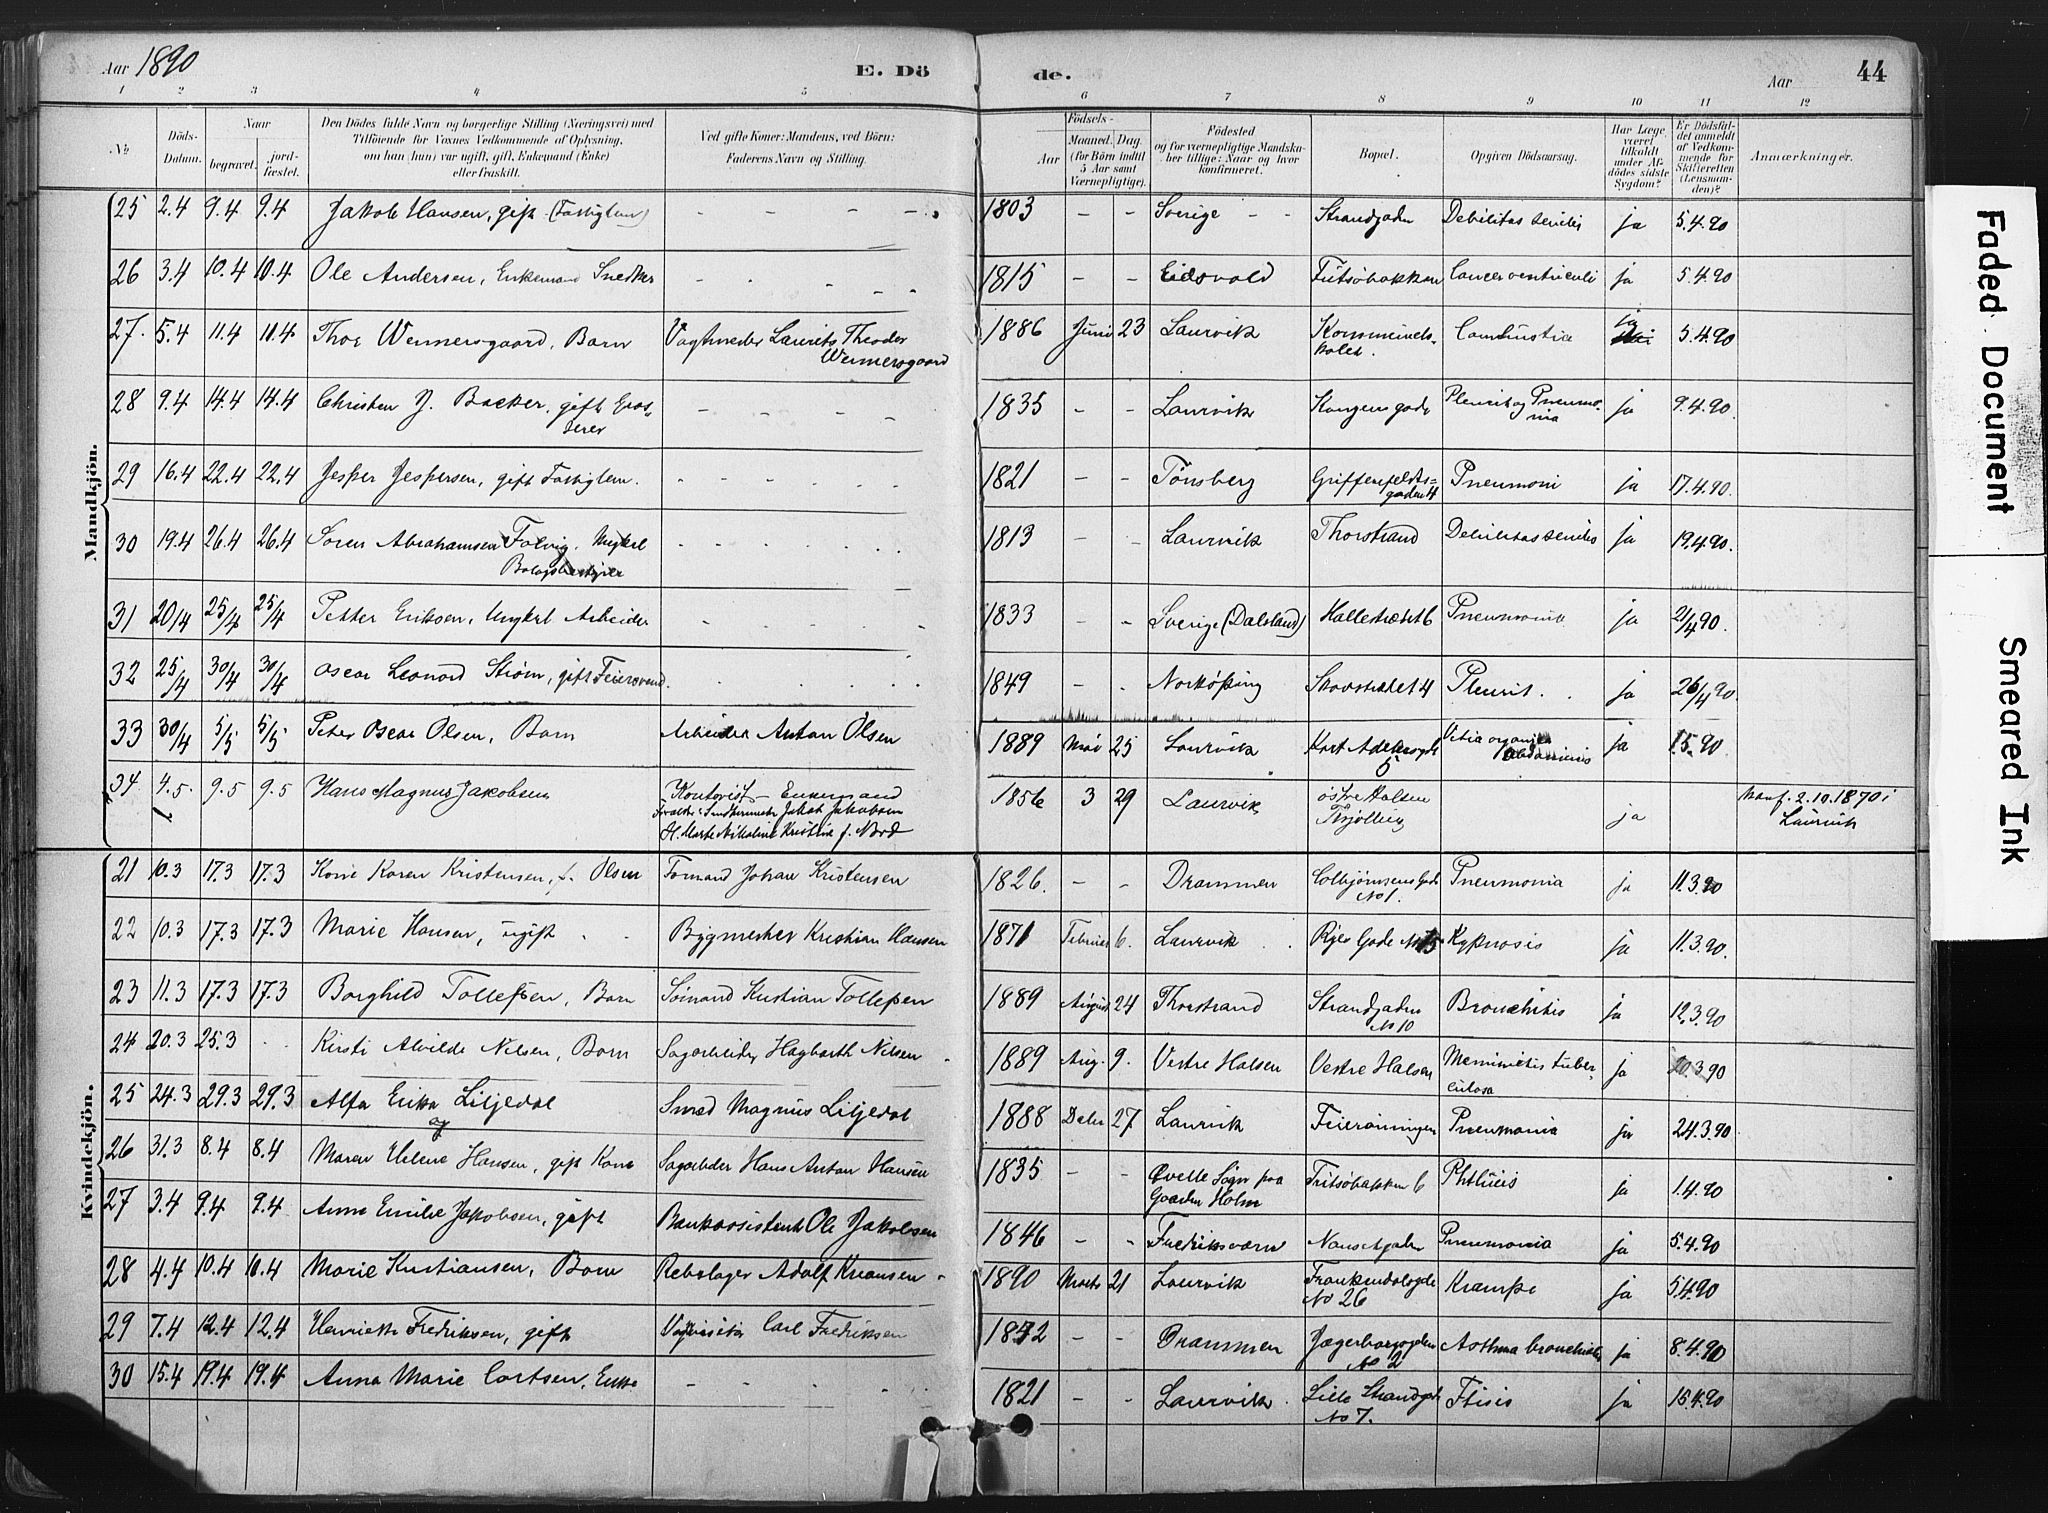 Aar 1890
E. Döde.
Aar
44
1 2 3 4 5 6 7 8 9 10 11 12
No
Döds-Datum.
Naar
begravet.
jordfæstet.
Den Dödes fulde Navn og borgerlige Stilling (Næringsvei) med
Tilföiende for Voxnes Vedkommende af Oplysning,
om han (hun) var ugift, gift, Enkemand (Enke)
eller fraskilt.
Ved gifte Koner: Mandens, ved Börn:
Faderens Navn og Stilling.
Födsels-
Aar
Maaned. Dag.
(for Börn indtil
5 Aar samt
Værnepligtige).
Födested
og for værnepligtige Mandskaber tillige: Naar og hvor
konfirmeret.
Bopæl.
Opgiven Dödsaarsag.
Har Læge
været
tilkaldt
under Afdödes sidste
Sygdom?
Er Dödsfaldet anmeldt
af Vedkommende for
Skifteretten
(Lensmanden)?
Anmærkninger.
Mandkjön.
25 2.4 9.4 9.4 Jakob Hansen, gift (Fattiglem) - - - - 1803 - - Sverige - - Strandgaden Debilitas senilis ja 5.4.90
26 3.4 10.4 10.4 Ole Andersen, Enkemand Snedker - - - - 1815 - - Eidsvold Fritsöbakken Cancer ventriculi ja 5.4.90
27. 5.4 11.4 11.4 Thor Wennersgaard, Barn Vagtmester Laurits Theodor
Wennersgaard 1886 Juni 23 Laurvik KommuneloKalet. Combustia ja 5.4.90
28 9.4 14.4 14.4 Christen J. Backer, gift Grosserer - - - - 1835 - - Laurvik Kongensgade Pleurit og Pneumonia ja 9.4.90.
29 16.4 22.4 22.4 Jesper Jespersen, gift Fattiglem. - - - - 1821 - - Tönsberg Griffenfeldtsgaden 4 Pneumoni ja 17.4.90.
30 19.4 26.4 26.4 Sören Abrahamsen Farvig. Ungkarl - - - - 1813 - - Laurvik Thorstrand Debilitas senilis ja 19.4.90.
31 20/4 25/4 25/4 Petter Eriksen, Ungkrl Arbeider - - - - 1833 - - Sverige (Dalsland) Hallestrædet 6 Pneumonia ja 21/4 90.
32 25/4 30/4 30/4 Oscar Leonard Ström, gift Feiersvend. 1849 - - Norköping Skovstrædet 4 Pleurit. ja 26/4 90
33 30/4 5/5 5/5 Peter Oscar Olsen, Barn Arbeider Anton Olsen 1889 Mai 25 Laurvik Kort Adelersgde
5 Vitia organica
abdominis ja 1.5.90
34 4.5. 9.5 9.5 Hans Magnus Jakobsen Kontorist - Enkemand
Jakob Jakobsen
H. Marte Nikoline Kristine f. Brod 1856 3 29 Laurvik, östre Halsen
Tkjølling ja Konf. 2.10.1870 i
Laurvik
Kvindekjön.
21 10.3 17.3 17.3 Kone Karen Kristensen, f. Olsen Formand Johan Kristensen 1826. - - Drammen Colbjörnsens Gade
No 1. Pneumonia ja 11.3.90
22 10.3 17.3 17.3 Marie Hansen, ugift Bygmester Kristian Hansen 1871 Februar 6. Laurvik Ryes Gade No 15 Kyphosis ja 11.3.90.
23 11.3 17.3 17.3 Borghild Tollefsen, Barn Sömand Kristian Tollefsen 1889 August 24 Thorstrand Strandgaden
No 10 Bronchitis ja 12.3.90
24 20.3 25.3 Kirsti Alvilde Nilsen, Barn Sagarbeider Hagbarth Nilsen 1889 Aug. 9. Vestre Halsen Vestre Halsen Meninitis tuberculosa ja 20.3.90
25 24.3 29.3 29.3 Alfa Erika Liljedal Smed Magnus Liljedal 1888 Decbr 27 Laurvik Feierönningen Pneumonia ja 24.3.90
26 31.3 8.4 8.4 Maren Helene Hansen, gift Kone Sagarbeider Hans Anton Hansen 1835 - - Qvelle Sogn paa
Gaarden Holm Fritsöbakken 6 Phthisis ja 1.4.90
27 3.4 9.4 9.4 Anne Emilie Jakobsen, gift Bankassistent Ole Jakobsen 1846 - - Fredriksværn Nansetgaden Pneumonia ja 5.4.90
28 4.4 10.4 10.4 Marie Kristiansen, Barn Rebslager Adolf Kristiansen 1890 Marts 21 Laurvik Frankendalsgde
No 26 Krampe ja 5.4.90
29 7.4 12.4 12.4 Henriette Fredriksen, gift Carl Fredriksen 1842 - - Drammen Jegersborggaden
No 2 Asthma bronchiale ja 8.4.90
30 15.4 19.4 19.4 Anna Marie Cortsen, Enke - - - - 1821 - - Laurvik Lille Strandgade
No 7. Ftisis ja 15.4.90
Faded Document
Smeared Ink